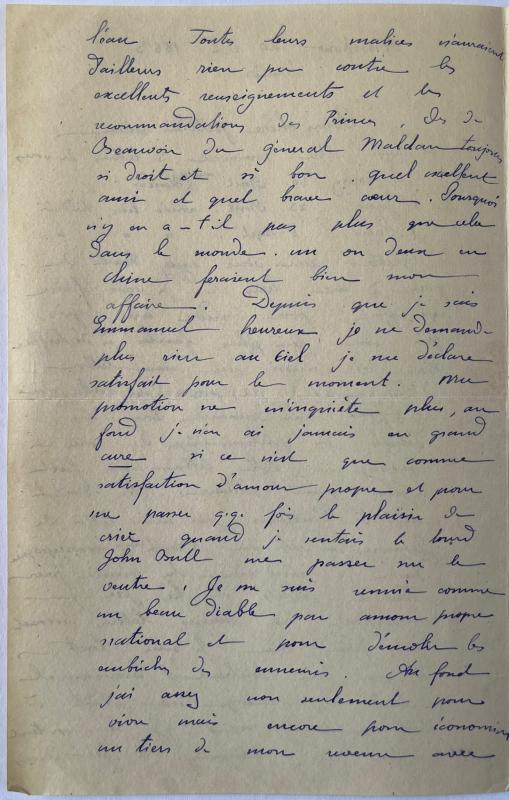 l'eau. Toutes leurs malices n'auraient
d'ailleurs rien pu contre les
excellents renseignements et les
recommandations des Princes, des de
Beauvoir du général Maldan toujours
si droit et si bon. quel excellent
ami et quel brave cœur. Pourquoi
n'y en a-t'il pas plus que cela
dans le monde. un ou deux en
chine feraient bien mon
affaire. Depuis que je sais
Emmanuel heureux je ne demande
plus rien au Ciel je me déclare
satisfait pour le moment. Ma
promotion ne m'inquiète plus, au
fond je n'en ai jamais eu grand
cure si ce n'est que comme
satisfaction d'amour propre et pour
me passer q.q. fois le plaisir de
crier quand je sentais le lourd
John Bull me passer sur le
ventre. Je me suis remué comme
un beau diable par amour propre
national et pour démolir les
embûches des ennemis. Au fond
j'ai assez non seulement pour
vivre mais encore pour économiser
un tiers de mon revenu avec